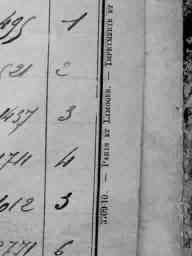 495 1
521 2
1437 3
1711 4
1612 5
2771 6
5309-10. — PARIS ET LIMOGES. — IMPRIMERIE ET